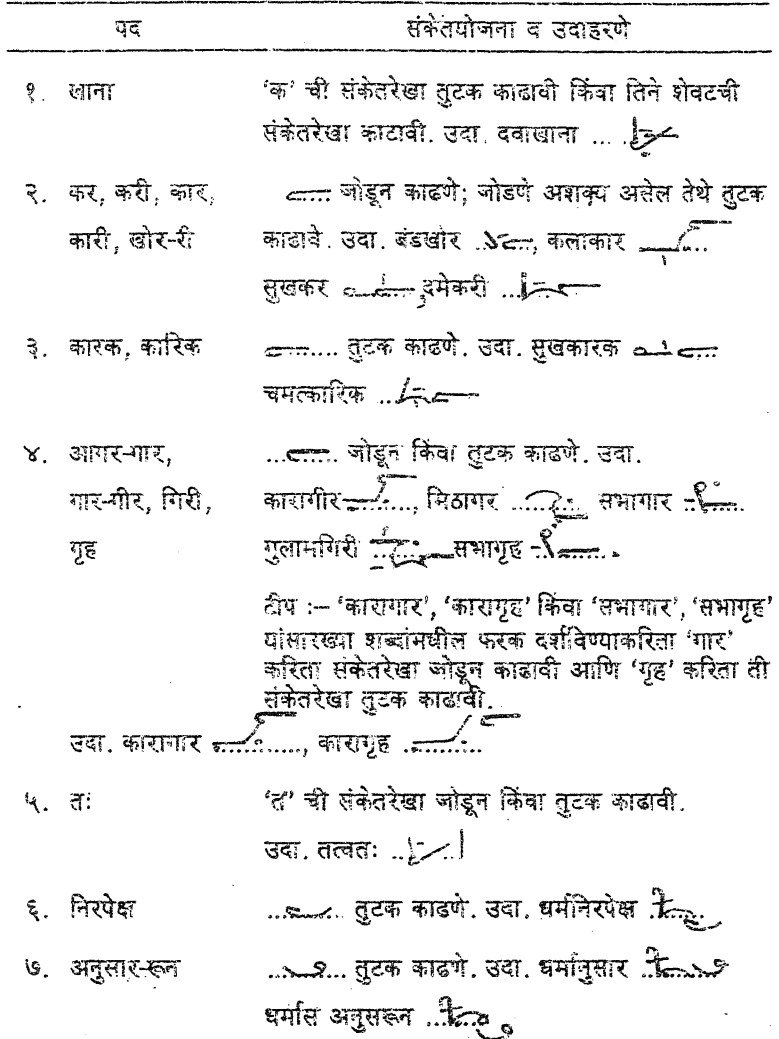 पद संकेतयोजना व उदाहरणे
१. खाना 'क' ची संकेतरेखा तुटक काढावी किंवा तिने शेवटची
संकेतरेखा काटावी. उदा. दवाखाना ...
२. कर, करी, कार, ..... जोडून काढणे; जोडणे अशक्य असेल तेथे तुटक
कारी, खोर-री काढावे. उदा. बंडखोर ....., कलाकार .....
सुखकर ....., दमेकरी ...
३. कारक, कारिक ..... तुटक काढणे. उदा. सुखकारक .....
चमत्कारिक ...
४. आगर-गार, ..... जोडून किंवा तुटक काढणे. उदा.
गार-गीर, गिरी, कारागीर ....., मिठागर ..... सभागार .....
गृह गुलामगिरी ..... सभागृह .....
टीप :– 'कारागार', 'कारागृह' किंवा 'सभागार', 'सभागृह'
यांसारख्या शब्दांमधील फरक दर्शविण्याकरिता 'गार'
करिता संकेतरेखा जोडून काढावी आणि 'गृह' करिता ती
संकेतरेखा तुटक काढावी.
उदा. कारागार ....., कारागृह .....
५. तः 'त' ची संकेतरेखा जोडून किंवा तुटक काढावी.
उदा. तत्वतः ...
६. निरपेक्ष ..... तुटक काढणे. उदा. धर्मनिरपेक्ष .....
७. अनुसार-रून ..... तुटक काढणे. उदा. धर्मानुसार .....
धर्मास अनुसरून .....